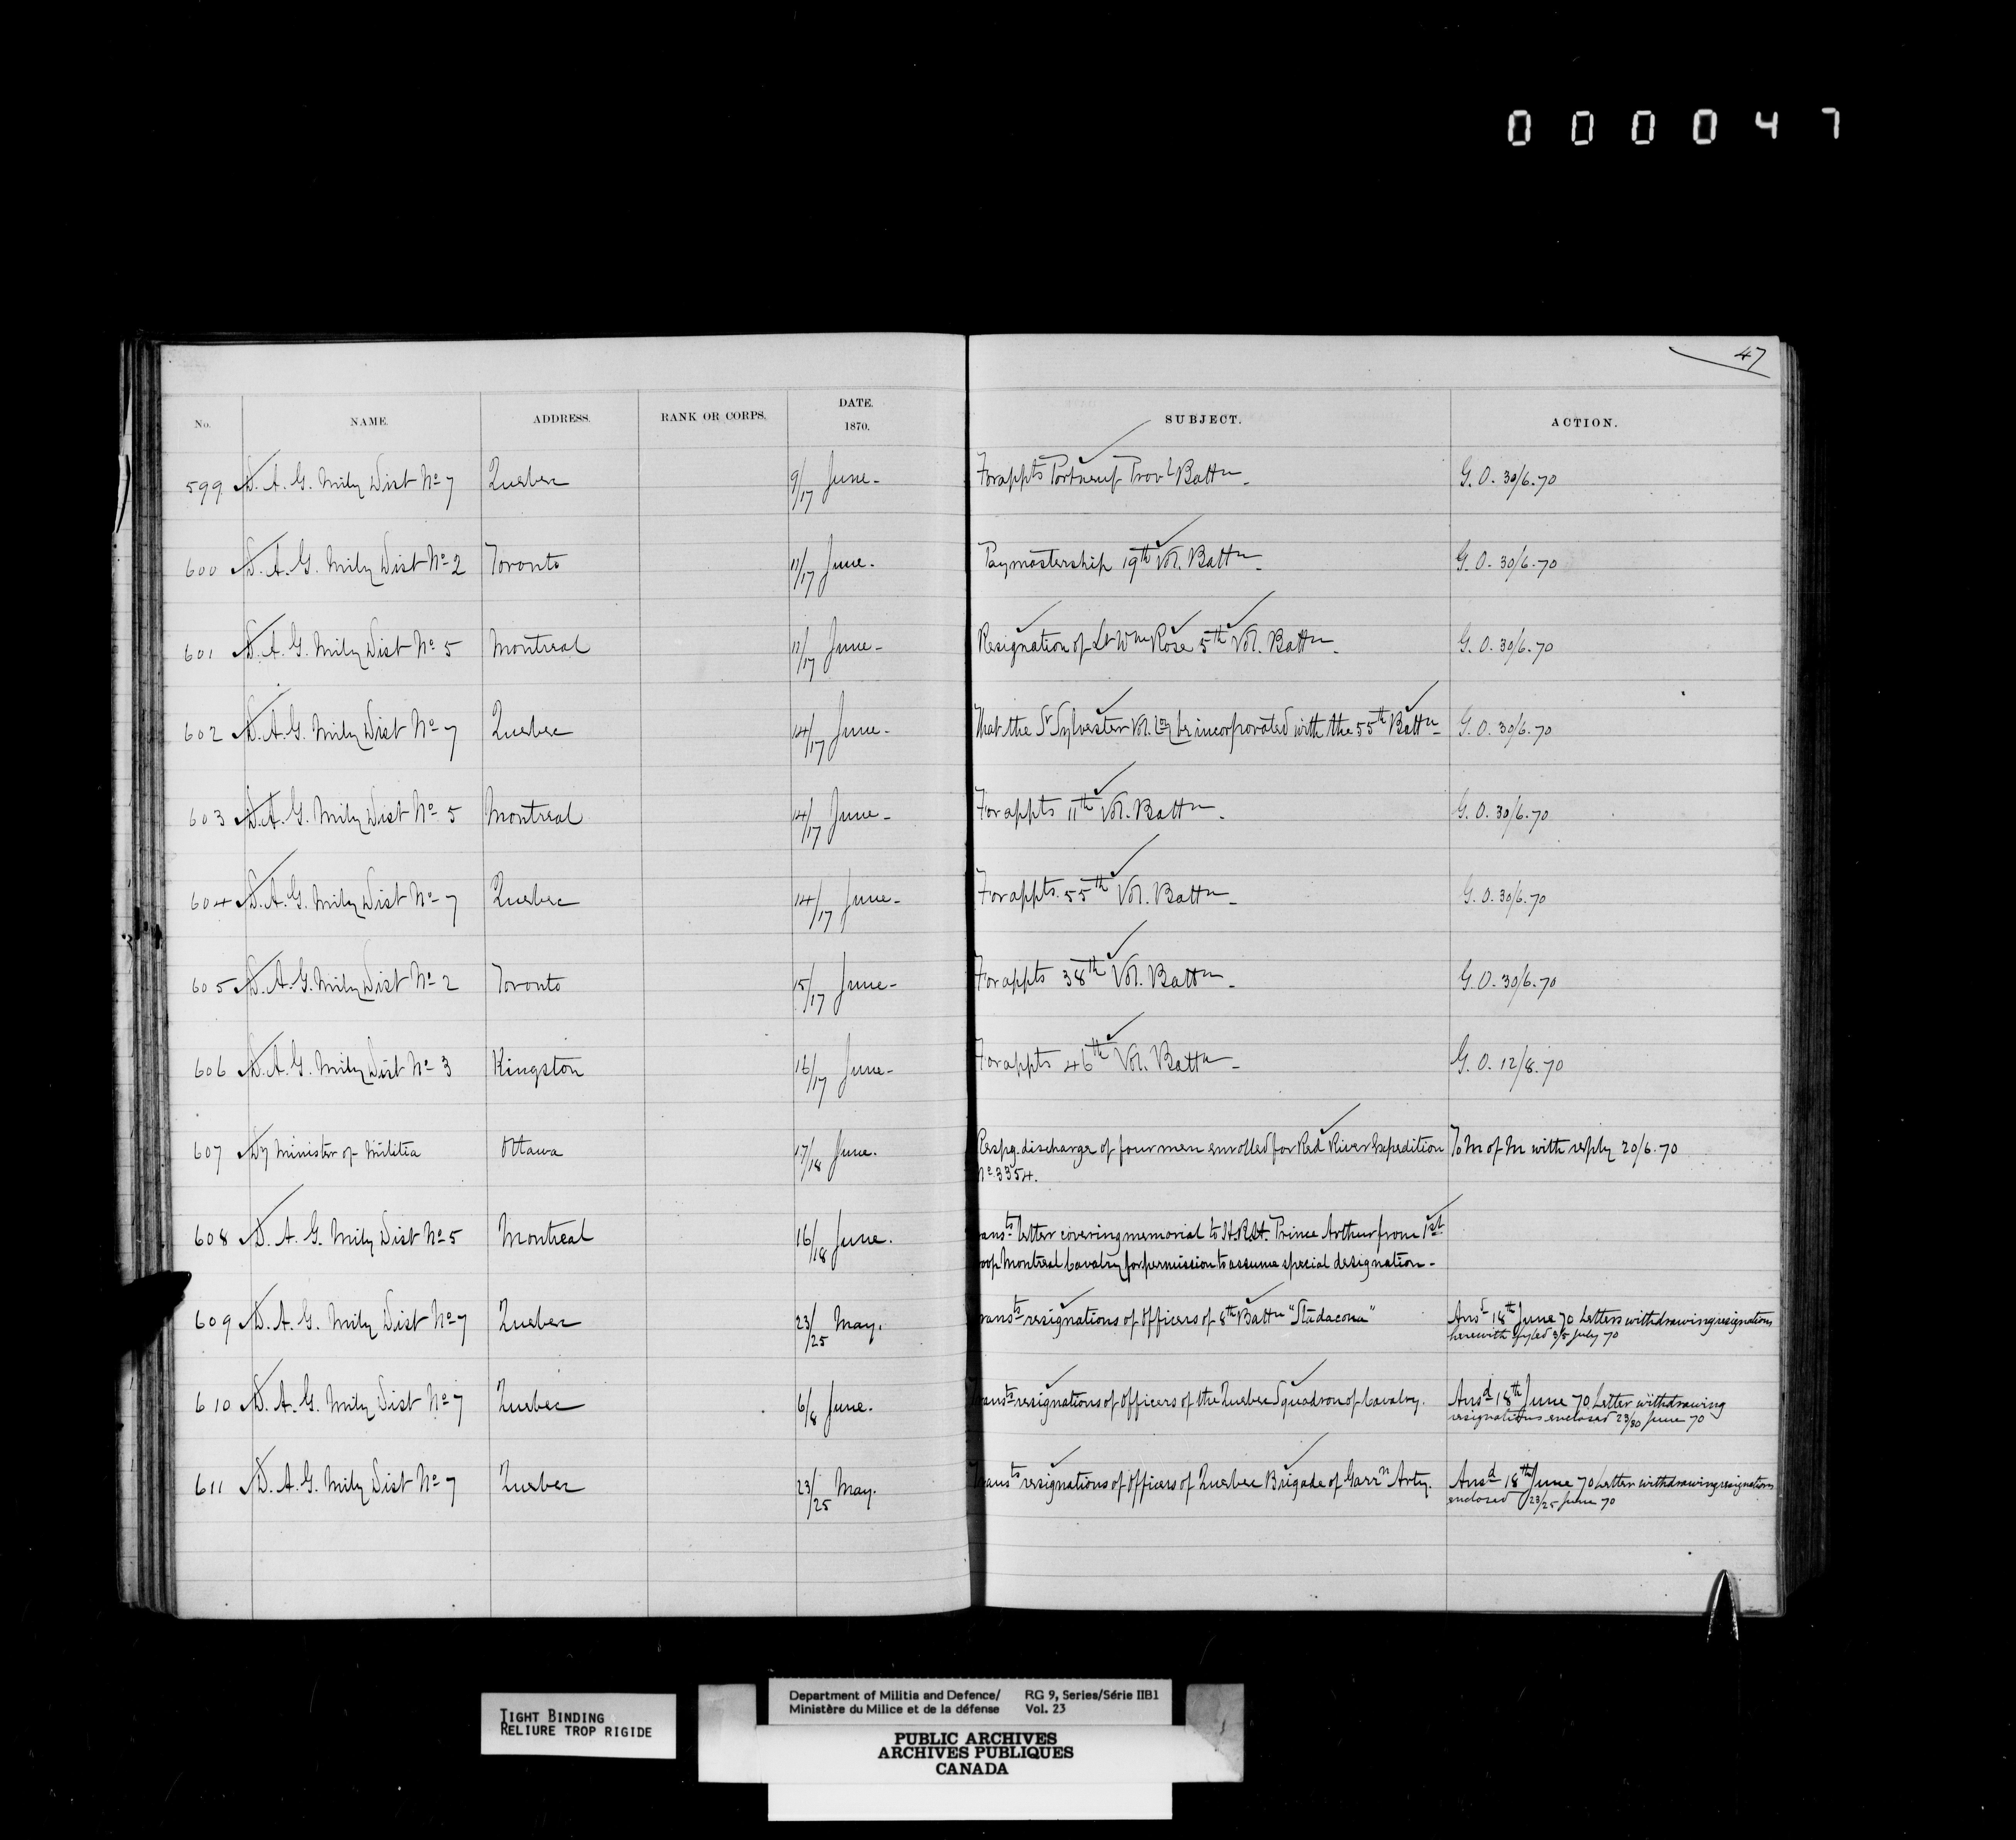 000047
47
No. NAME. ADDRESS. RANK OR CORPS. DATE. 1870. SUBJECT. ACTION.
599 D. A. G. Mily Dist No 7 Quebec 9/17 June - For appts Portneuf Provl Battn - G. O. 30/6.70
600 D. A. G. Mily Dist No 2 Toronto 11/17 June - Paymastership 19th Vol. Battn - G. O. 30/6.70
601 D. A. G. Mily Dist No 5 Montreal 11/17 June - Resignation of Lt Wm Rose 5th Vol. Battn - G. O. 30/6.70
602 D. A. G. Mily Dist No 7 Quebec 14/17 June - That the St Sylvester Vol. Coy be incorporated with the 55th Battn - G. O. 30/6.70
603 D. A. G. Mily Dist No 5 Montreal 14/17 June - For appts 11th Vol. Battn - G. O. 30/6.70
604 D. A. G. Mily Dist No 7 Quebec 14/17 June - For appts. 55th Vol. Battn - G. O. 30/6.70
605 D. A. G. Mily Dist No 2 Toronto 15/17 June - For appts 38th Vol. Battn - G. O. 30/6.70
606 D. A. G. Mily Dist No 3 Kingston 16/17 June - For appts 46th Vol. Battn - G. O. 12/8.70
607 Dy Minister of Militia Ottawa 17/18 June. Respg. discharge of four men enrolled for Red River Expedition To M of M with reply 20/6.70
No 3354.
608 D. A. G. Mily Dist No 5 Montreal 16/18 June. ansts letter covering memorial to H.R.H. Prince Arthur from 1st
oop Montreal Cavalry for permission to assume special designation -
609 D. A. G. Mily Dist No 7 Quebec 23/25 May. ransts resignations of Officers of 8th Battn "Stadacona" Ansd 18th June 70 Letters withdrawing resignations
herewith fyled 3/5 July 70
610 D. A. G. Mily Dist No 7 Quebec 6/8 June. ransts resignations of Officers of the Quebec Squadron of Cavalry. Ansd 18th June 70. Letter withdrawing
resignations enclosed 23/30 June 70
611 D. A. G. Mily Dist No 7 Quebec 23/25 May. ransts resignations of Officers of Quebec Brigade of Garrn Arty. Ansd 18th June 70 Letter withdrawing resignations
enclosed 23/25 June 70
TIGHT BINDING
RELIURE TROP RIGIDE
Department of Militia and Defence/ RG 9, Series/Série IIB1
Ministère du Milice et de la défense Vol. 23
PUBLIC ARCHIVES
ARCHIVES PUBLIQUES
CANADA